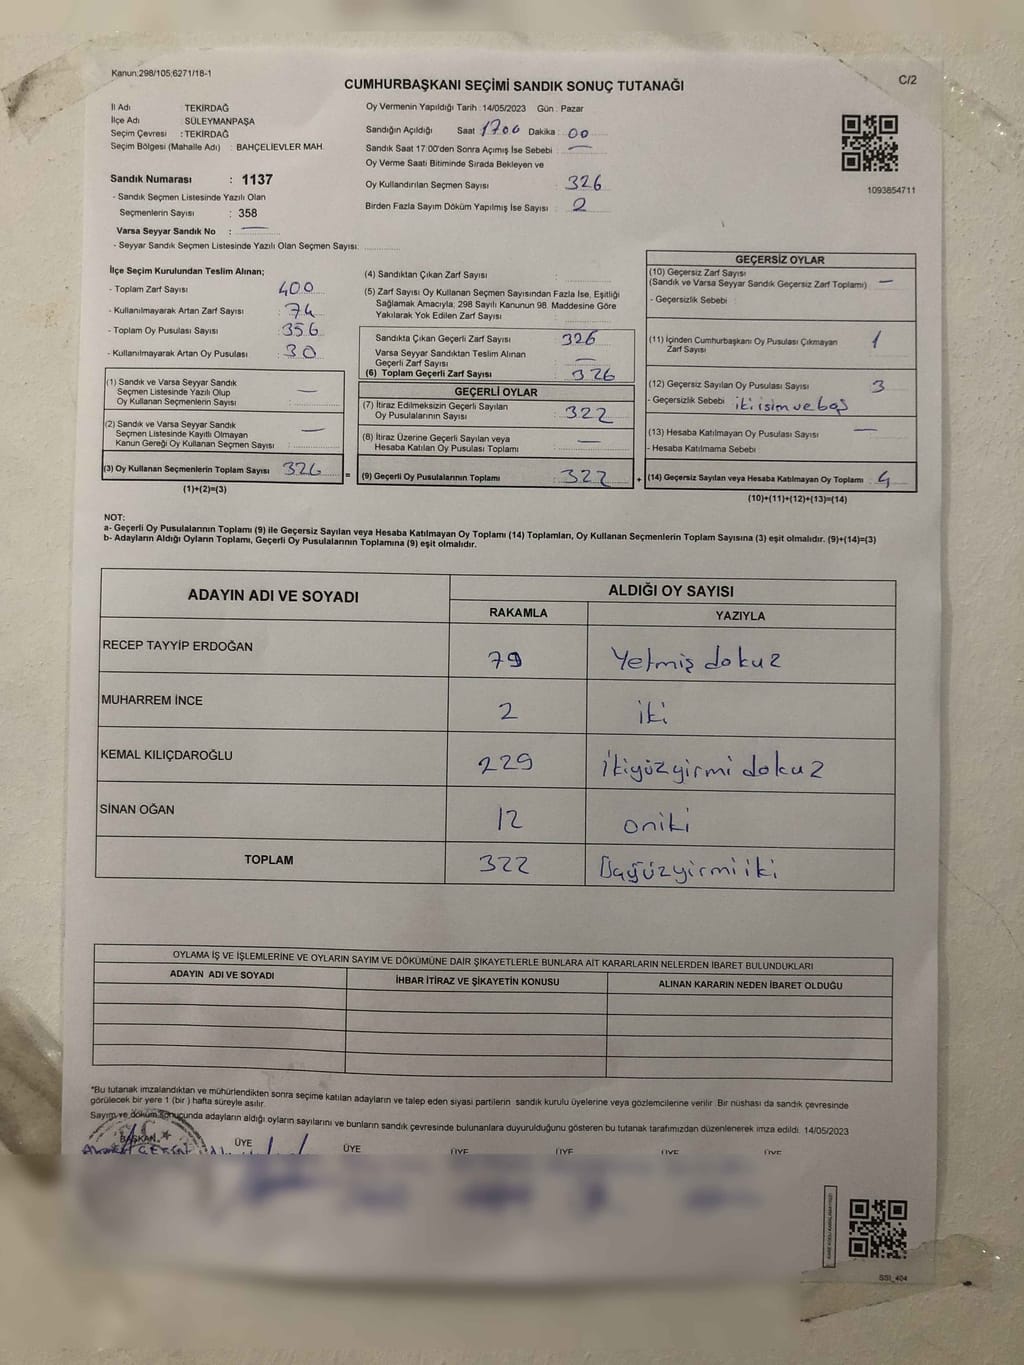 Kanun:298/105;6271/18-1
C/2
CUMHURBAŞKANI SEÇİMİ SANDIK SONUÇ TUTANAĞI
İl Adı TEKİRDAĞ
İlçe Adı SÜLEYMANPAŞA
Seçim Çevresi : TEKİRDAĞ
Seçim Bölgesi (Mahalle Adı) : BAHÇELİEVLER MAH.
Sandık Numarası : 1137
- Sandık Seçmen Listesinde Yazılı Olan
Seçmenlerin Sayısı : 358
Varsa Seyyar Sandık No : —
- Seyyar Sandık Seçmen Listesinde Yazılı Olan Seçmen Sayısı:
Oy Vermenin Yapıldığı Tarih : 14/05/2023 Gün : Pazar
Sandığın Açıldığı Saat 1700 Dakika : 00
Sandık Saat 17:00'den Sonra Açmış İse Sebebi : —
Oy Verme Saati Bitiminde Sırada Bekleyen ve
Oy Kullandırılan Seçmen Sayısı : 326
Birden Fazla Sayım Döküm Yapılmış İse Sayısı : 2
1093854711
İlçe Seçim Kurulundan Teslim Alınan;
- Toplam Zarf Sayısı : 400
- Kullanılmayarak Artan Zarf Sayısı : 74
- Toplam Oy Pusulası Sayısı : 356
- Kullanılmayarak Artan Oy Pusulası : 30
(1) Sandık ve Varsa Seyyar Sandık
Seçmen Listesinde Yazılı Olup
Oy Kullanan Seçmenlerin Sayısı : —
(2) Sandık ve Varsa Seyyar Sandık
Seçmen Listesinde Kayıtlı Olmayan
Kanun Gereği Oy Kullanan Seçmen Sayısı : —
(3) Oy Kullanan Seçmenlerin Toplam Sayısı 326 =
(1)+(2)=(3)
(4) Sandıktan Çıkan Zarf Sayısı :
(5) Zarf Sayısı Oy Kullanan Seçmen Sayısından Fazla İse, Eşitliği
Sağlamak Amacıyla, 298 Sayılı Kanunun 98. Maddesine Göre
Yakılarak Yok Edilen Zarf Sayısı :
Sandıkta Çıkan Geçerli Zarf Sayısı : 326
Varsa Seyyar Sandıktan Teslim Alınan
Geçerli Zarf Sayısı : —
(6) Toplam Geçerli Zarf Sayısı : 326
GEÇERLİ OYLAR
(7) İtiraz Edilmeksizin Geçerli Sayılan
Oy Pusulalarının Sayısı : 322
(8) İtiraz Üzerine Geçerli Sayılan veya
Hesaba Katılan Oy Pusulası Toplamı : —
(9) Geçerli Oy Pusulalarının Toplamı : 322 +
GEÇERSİZ OYLAR
(10) Geçersiz Zarf Sayısı
(Sandık ve Varsa Seyyar Sandık Geçersiz Zarf Toplamı) —
- Geçersizlik Sebebi :
(11) İçinden Cumhurbaşkanı Oy Pusulası Çıkmayan
Zarf Sayısı : 1
(12) Geçersiz Sayılan Oy Pusulası Sayısı : 3
- Geçersizlik Sebebi : iki isim ve boş
(13) Hesaba Katılmayan Oy Pusulası Sayısı : —
- Hesaba Katılmama Sebebi :
(14) Geçersiz Sayılan veya Hesaba Katılmayan Oy Toplamı : 4
(10)+(11)+(12)+(13)=(14)
NOT:
a- Geçerli Oy Pusulalarının Toplamı (9) ile Geçersiz Sayılan veya Hesaba Katılmayan Oy Toplamı (14) Toplamları, Oy Kullanan Seçmenlerin Toplam Sayısına (3) eşit olmalıdır. (9)+(14)=(3)
b- Adayların Aldığı Oyların Toplamı, Geçerli Oy Pusulalarının Toplamına (9) eşit olmalıdır.
ADAYIN ADI VE SOYADI ALDIĞI OY SAYISI
RAKAMLA YAZIYLA
RECEP TAYYİP ERDOĞAN 79 Yetmiş dokuz
MUHARREM İNCE 2 iki
KEMAL KILIÇDAROĞLU 229 ikiyüzyirmi dokuz
SİNAN OĞAN 12 oniki
TOPLAM 322 Üçyüzyirmi iki
OYLAMA İŞ VE İŞLEMLERİNE VE OYLARIN SAYIM VE DÖKÜMÜNE DAİR ŞİKAYETLERLE BUNLARA AİT KARARLARIN NELERDEN İBARET BULUNDUKLARI
ADAYIN ADI VE SOYADI İHBAR İTİRAZ VE ŞİKAYETİN KONUSU ALINAN KARARIN NEDEN İBARET OLDUĞU
*Bu tutanak imzalandıktan ve mühürlendikten sonra seçime katılan adayların ve talep eden siyasi partilerin sandık kurulu üyelerine veya gözlemcilerine verilir. Bir nüshası da sandık çevresinde
görülecek bir yere 1 (bir ) hafta süreyle asılır.
Sayım ve döküm sonucunda adayların aldığı oyların sayılarını ve bunların sandık çevresinde bulunanlara duyurulduğunu gösteren bu tutanak tarafımızdan düzenlenerek imza edildi. 14/05/2023
BAŞKAN ÜYE ÜYE ÜYE ÜYE ÜYE ÜYE
SSI_404